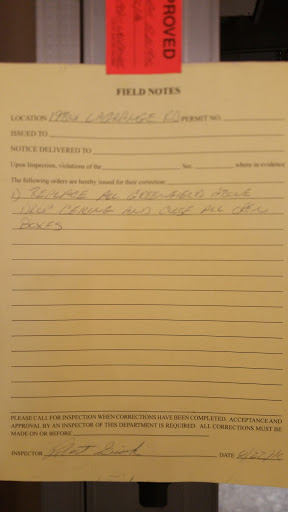 PROVED
FIELD NOTES
LOCATION LAGRANGE RD PERMIT NO.
ISSUED TO
NOTICE DELIVERED TO
Upon Inspection, violations of the Sec. where in evidence
The following orders are hereby issued for their correction:
1) REPLACE ALL GREENFIELD ABOVE
DROP CEILING AND CLOSE ALL OPEN
BOXES
PLEASE CALL FOR INSPECTION WHEN CORRECTIONS HAVE BEEN COMPLETED. ACCEPTANCE AND
APPROVAL BY AN INSPECTOR OF THIS DEPARTMENT IS REQUIRED. ALL CORRECTIONS MUST BE
MADE ON OR BEFORE
INSPECTOR DATE